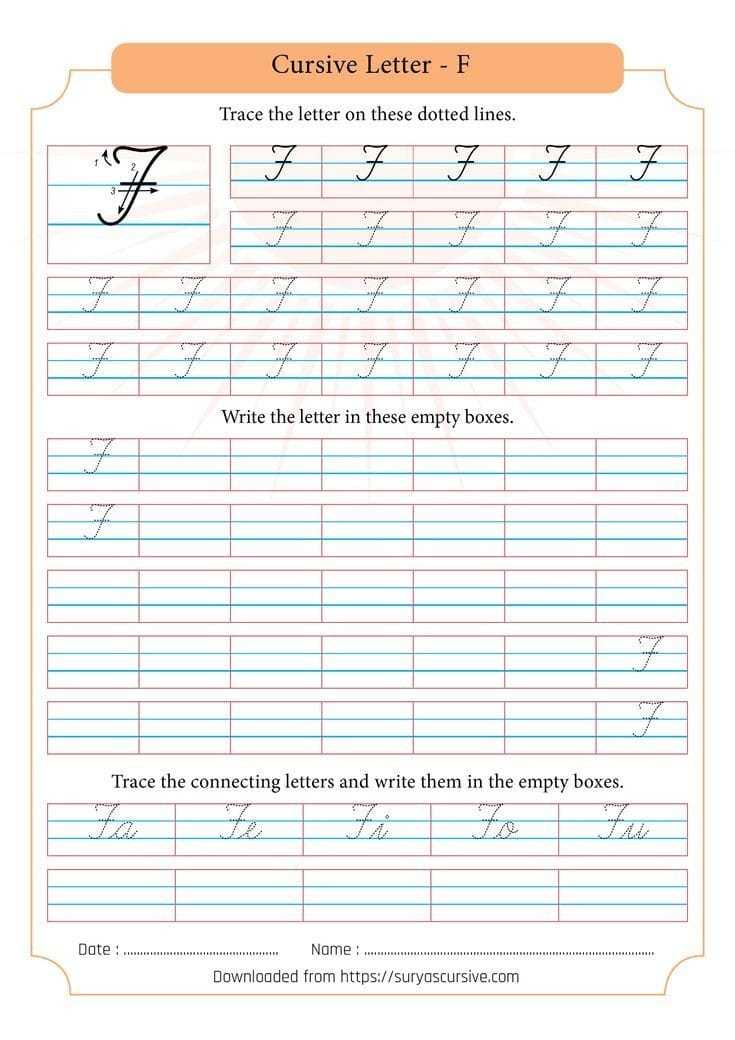 Cursive Letter - F
Trace the letter on these dotted lines.
1 2 3 F F F F F F
F F F F F
F F F F F F F
F F F F F F F
Write the letter in these empty boxes.
F
F
F
F
Trace the connecting letters and write them in the empty boxes.
Fa Fe Fi Fo Fu
Date : Name :
Downloaded from https://suryascursive.com